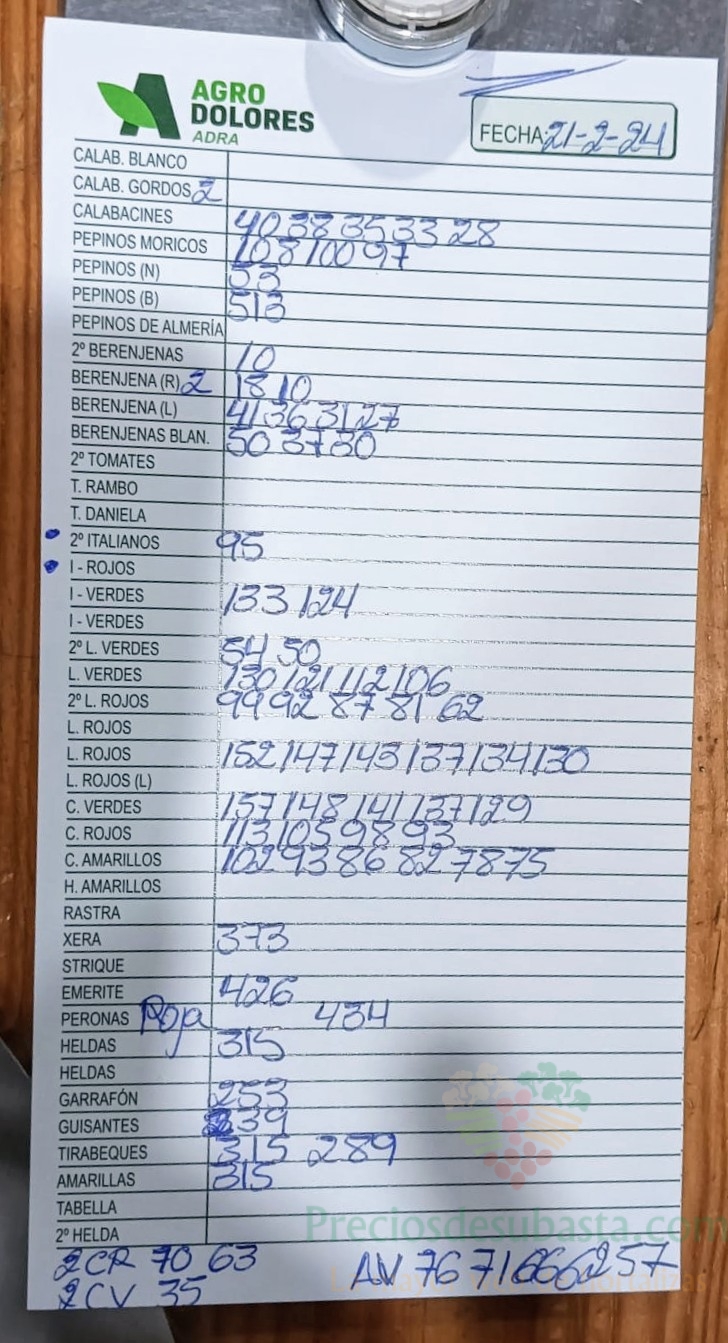 AGRO
DOLORES
ADRA
FECHA: 21-2-24
CALAB. BLANCO
CALAB. GORDOS 2
CALABACINES 40 38 35 33 28
PEPINOS MORICOS 108 100 97
PEPINOS (N) 53
PEPINOS (B) 513
PEPINOS DE ALMERÍA
2º BERENJENAS 10
BERENJENA (R) 2 18 10
BERENJENA (L) 41 36 31 27
BERENJENAS BLAN. 50 37 30
2º TOMATES
T. RAMBO
T. DANIELA
2º ITALIANOS 95
I - ROJOS
I - VERDES 133 124
I - VERDES
2º L. VERDES 54 50
L. VERDES 130 121 112 106
2º L. ROJOS 99 92 87 81 62
L. ROJOS
L. ROJOS 152 147 143 137 134 130
L. ROJOS (L)
C. VERDES 157 148 141 137 129
C. ROJOS 113 105 98 93
C. AMARILLOS 102 93 86 82 78 75
H. AMARILLOS
RASTRA
XERA 373
STRIQUE
EMERITE 426
PERONAS Roja 434
HELDAS 315
HELDAS
GARRAFÓN 253
GUISANTES 239
TIRABEQUES 315 289
AMARILLAS 315
TABELLA
2º HELDA
Preciosdesubasta.com
2CR 70 63 AV 76 71 66 62 57
2CV 35